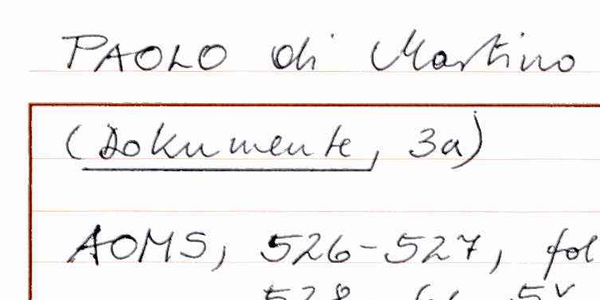 PAOLO di Martino
(Dokumente, 3a)
AOMS, 526-527, fol
528